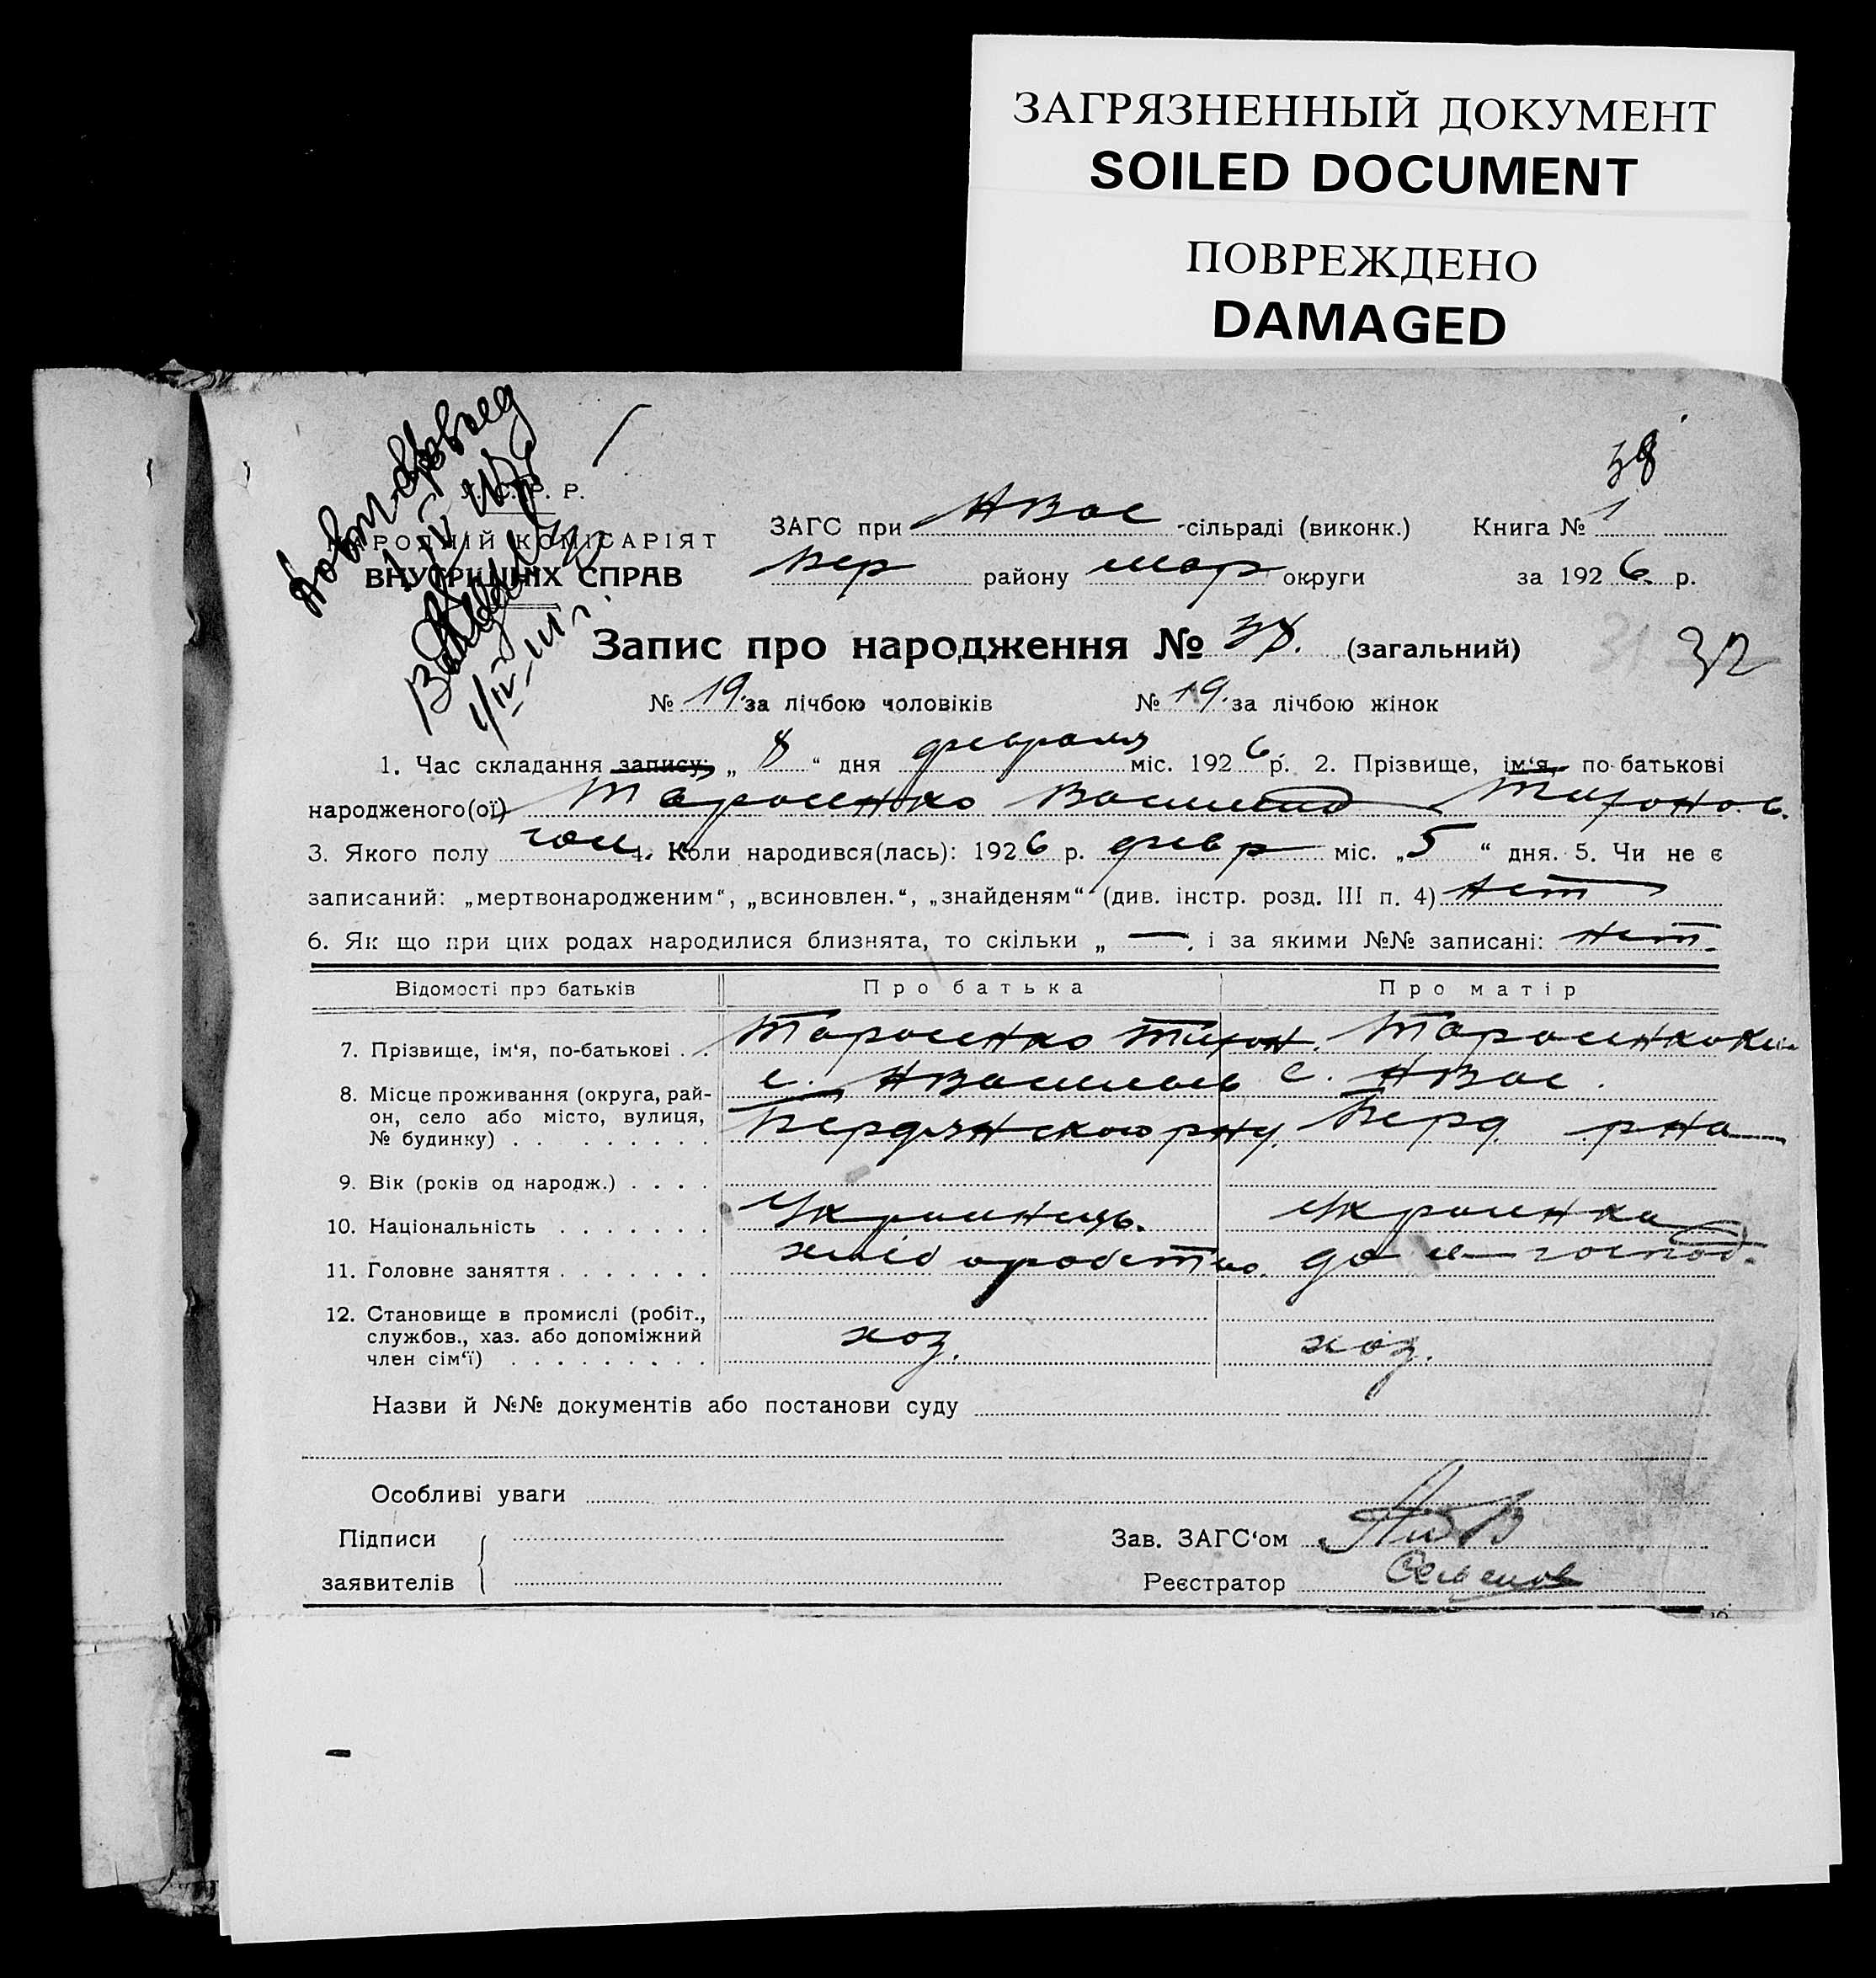 ЗАГРЯЗНЕННЫЙ ДОКУМЕНТ
SOILED DOCUMENT
ПОВРЕЖДЕНО
DAMAGED
38
Р. Р.
НАРОДНІЙ КОМІСАРІЯТ
ВНУТРІШНІХ СПРАВ
ЗАГС при НВас сільраді (виконк.) Книга № 1
Бер району Мар округи за 1926 р.
Запис про народження № 38. (загальний) 32
№ 19. за лічбою чоловіків № 19. за лічбою жінок
1. Час складання запису: „ 8 “ дня февраля міс. 1926 р. 2. Прізвище, ім‘я, по батькові
народженого(ої) Тарасенко Василий Тихонов.
3. Якого полу 4. Коли народився(лась): 1926 р. февр міс. „5 “ дня. 5. Чи не є
записаний: „мертвонародженим“, „всиновлен.“, „знайденям“ (див. інстр. розд. III п. 4) нет
6. Як що при цих родах народилися близнята, то скільки „ — , і за якими №№ записані: нет.
Відомості про батьків Про батька Про матір
7. Прізвище, ім‘я, по-батькові . . Тарасенко Тихон. Тарасенко
8. Місце проживання (округа, рай- с. НВасильев с. НВас.
он, село або місто, вулиця,
№ будинку) . . . . . . . . . Бердянского рну. Берд рна
9. Вік (років од народж.) . . . .
10. Національність . . . . . . . Украинець. Украинка
11. Головне заняття . . . . . . . хліборобство. дом господ.
12. Становище в промислі (робіт.,
службов., хаз. або допоміжний
член сім‘ї) . . . . . . . . . хоз. хоз.
Назви й №№ документів або постанови суду
Особливі уваги
Підписи
заявителів
Зав. ЗАГС‘ом
Реєстратор